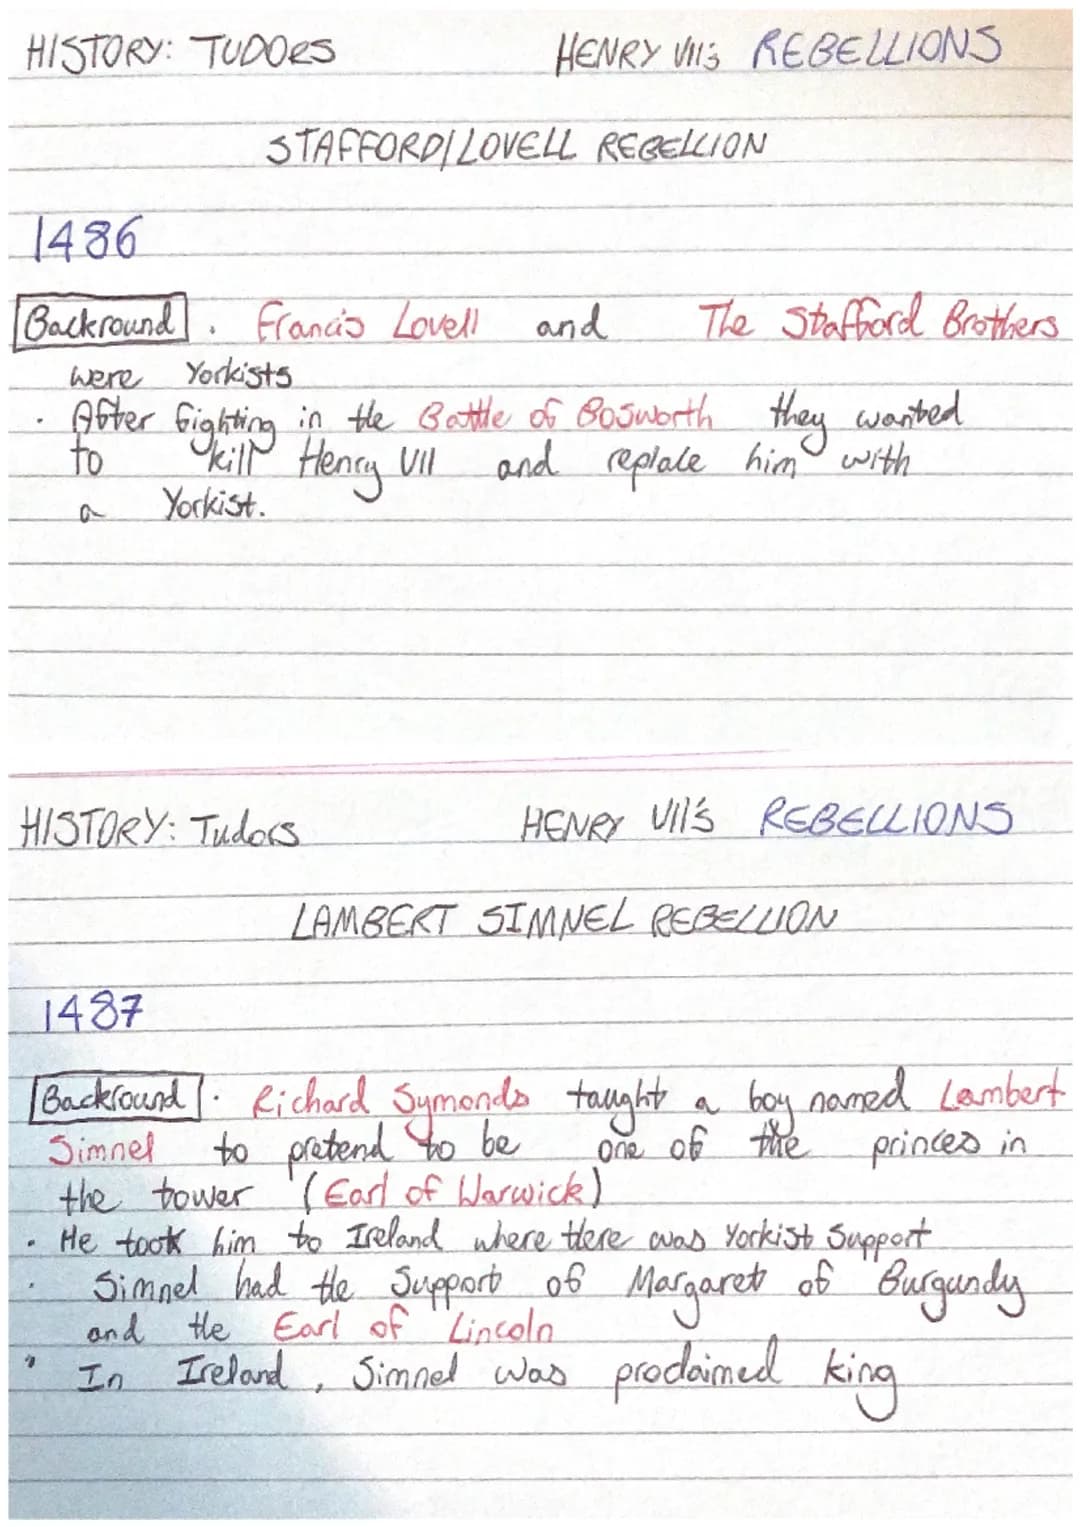 HISTORY: TUDORS HENRY VII's REBELLIONS
STAFFORD/LOVELL REBELLION
1486
Backround . Francis Lovell and The Stafford Brothers
were Yorkists
. After fighting in the Battle of Bosworth they wanted
to kill Henry VII and replace him with
a Yorkist.
HISTORY: Tudors HENRY VII's REBELLIONS
LAMBERT SIMNEL REBELLION
1487
Backround . Richard Symonds taught a boy named Lambert
Simnel to pretend to be one of the princes in
the tower (Earl of Warwick)
. He took him to Ireland where there was Yorkist Support
. Simnel had the Support of Margaret of Burgundy
and the Earl of Lincoln
. In Ireland, Simnel was proclaimed king